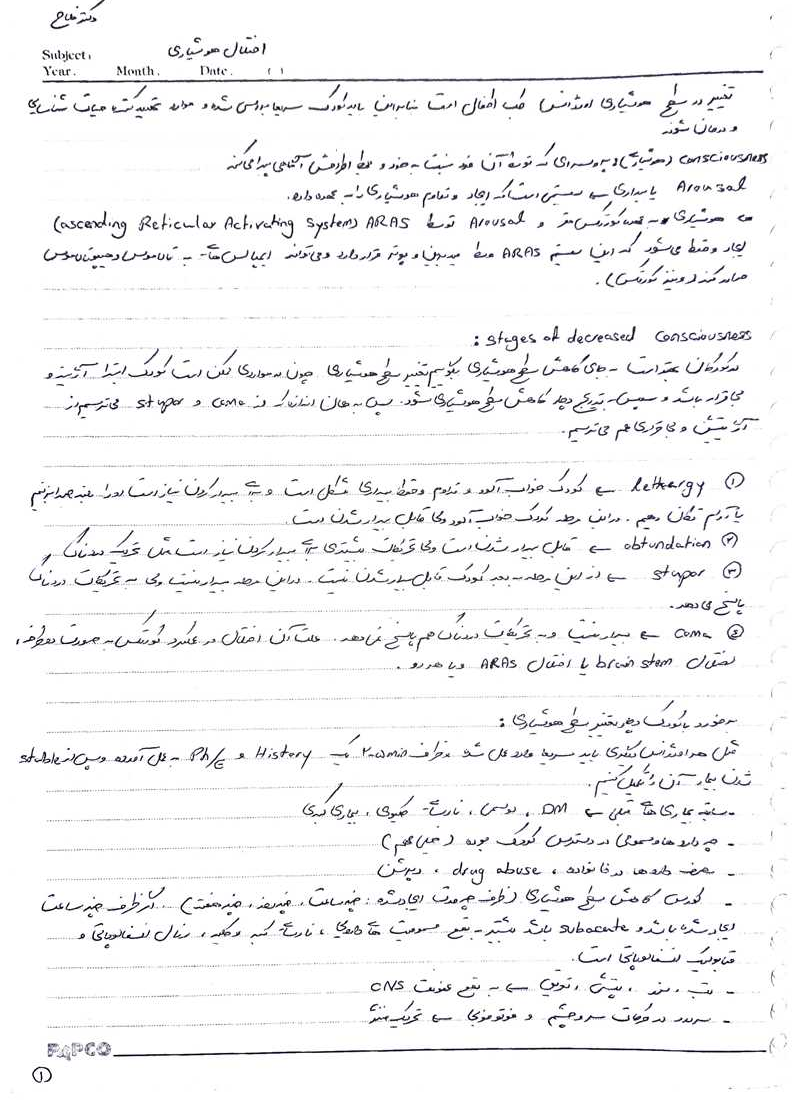 دکتر فلاح
Subject: اختلال هوشیاری
Year. Month. Date. ( )
تغییر در سطح هوشیاری اورژانس طب اطفال است بنابراین باید کودک سریعا بررسی شده و موارد تهدید کننده حیات شناسایی
و درمان شوند
consciousness (هوشیاری) پروسه‌ای که توسط آن فرد نسبت به خود و محیط اطرافش آگاهی پیدا می‌کند
Arousal یا بیداری ← سیستمی است که ایجاد و تداوم هوشیاری را به عهده دارد.
هوشیاری به عهده کورتکس مغز و Arousal توسط ARAS (ascending Reticular Activating System)
ایجاد و حفظ می‌شود که این سیستم ARAS وسط مدبرین و پونز قرار دارد و می‌تواند ایمپالس‌هایی به تالاموس و هیپوتالاموس
صادر کند (و نیز کورتکس).
stages of decreased consciousness :
در کودکان بهتر است به جای کاهش سطح هوشیاری بگوییم تغییر سطح هوشیاری چون در مواردی ممکن است کودک ابتدا آژیته و
بی‌قرار باشد و سپس به تدریج دچار کاهش سطح هوشیاری شود. پس به همان اندازه که از coma و stupor می‌ترسیم از
آژیتیشن و بی‌قراری هم می‌ترسیم.
① lethargy ← کودک خواب آلود و تداوم و حفظ بیداری مشکل است و برای بیدار کردن نیاز است او را بلند صدا بزنیم
یا آرام تکان دهیم. در این مرحله کودک خواب آلود ولی قابل بیدار شدن است
② obtundation ← قابل بیدار شدن است ولی تحریکات بیشتری برای بیدار کردن نیاز است مثل تحریک دردناک
③ stupor ← از این مرحله به بعد کودک قابل بیدار شدن نیست. در این مرحله بیدار نیست ولی به تحریکات دردناک
پاسخ می‌دهد.
④ coma ← بیدار نیست و به تحریکات دردناک هم پاسخ نمی‌دهد. علت آن اختلال در عملکرد کورتکس به صورت دوطرفه،
اختلال brain stem یا اختلال ARAS و یا هر دو.
برخورد با کودک دچار تغییر سطح هوشیاری :
مثل هر اورژانس دیگری باید سریعا وارد عمل شد در ظرف ۲۰-۵min یک History و Ph/E به عمل آورده و پس از stable
شدن بیمار آن را تکمیل کنیم.
- سابقه بیماری‌های قبلی ← DM، نارسایی کلیوی، بیماری کبدی
- چه داروها و سمومی در دسترس کودک بوده (خیلی مهم)
- مصرف داروها در خانواده، drug abuse، دپرشن
- کورس کاهش سطح هوشیاری (ظرف چه مدت ایجاد شده : چند ساعت، چند روز، چند هفته). اگر ظرف چند ساعت
ایجاد شده باشد و subacute باشد بیشتر به نفع مسمومیت‌های دارویی، نارسایی کبد و کلیه، رنال انسفالوپاتی و
متابولیک انسفالوپاتی است.
- تب، ← به نفع عفونت CNS
- سردرد در حرکات سر و چشم و فوتوفوبی ← تحریک مننژ
PAPCO
①